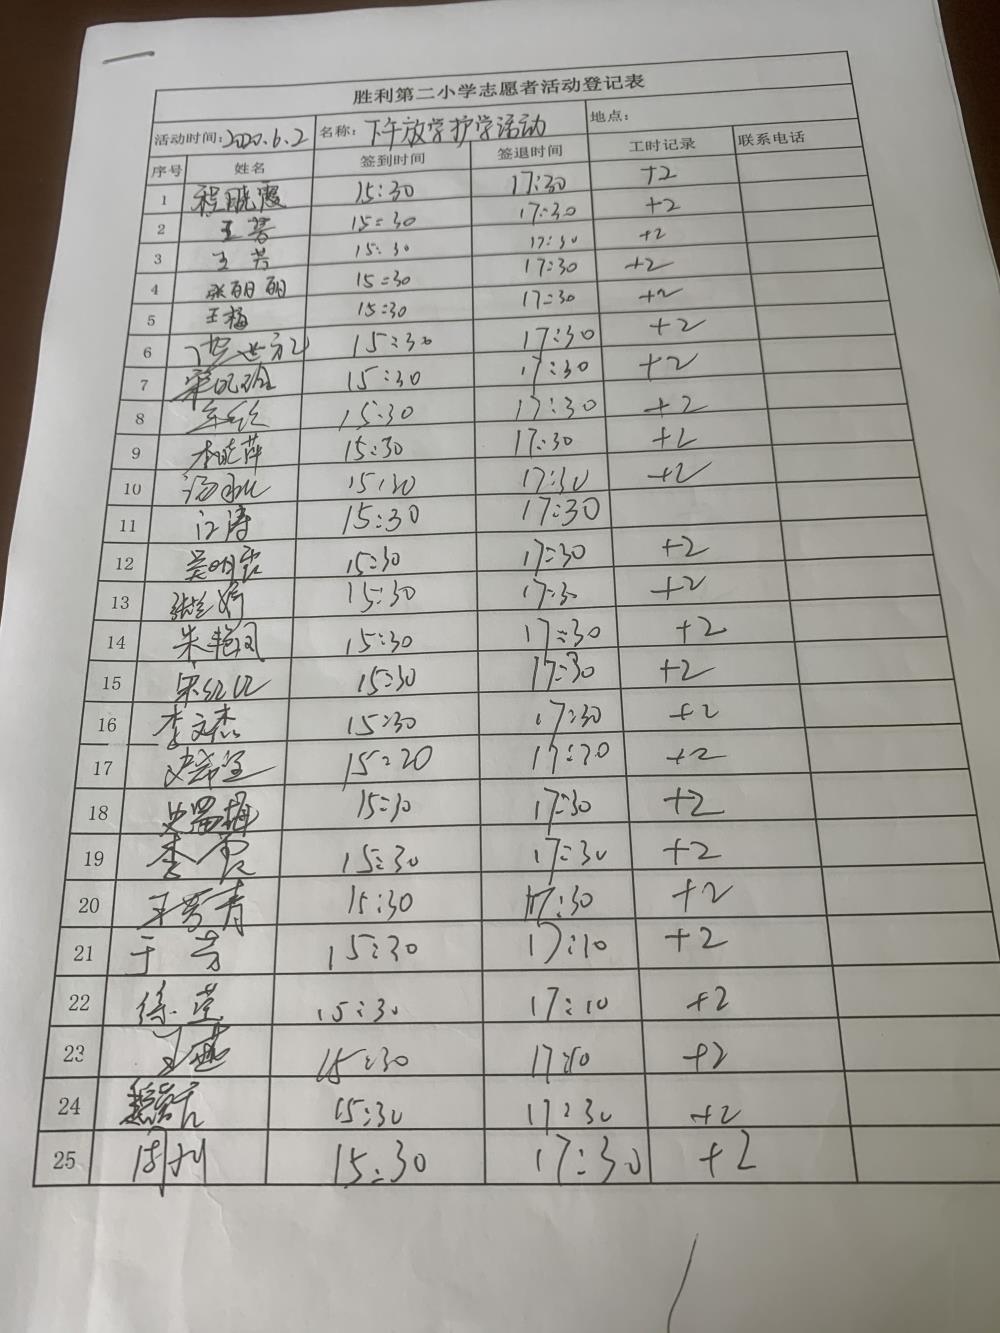 胜利第二小学志愿者活动登记表
活动时间:2020.6.2 名称: 下午放学护学活动 地点:
序号 姓名 签到时间 签退时间 工时记录 联系电话
1 程晓霞 15:30 17:30 +2
2 王琴 15:30 17:30 +2
3 王芳 15:30 17:30 +2
4 张丽丽 15:30 17:30 +2
5 王梅 15:30 17:30 +2
6 15:30 17:30 +2
7 15:30 17:30 +2
8 15:30 17:30 +2
9 李晓萍 15:30 17:30 +2
10 15:30 17:30 +2
11 江涛 15:30 17:30
12 吴明霞 15:30 17:30 +2
13 15:30 17:30 +2
14 朱艳凤 15:30 17:30 +2
15 宋红红 15:30 17:30 +2
16 李文杰 15:30 17:30 +2
17 15:20 17:20 +2
18 15:30 17:30 +2
19 15:30 17:30 +2
20 15:30 17:30 +2
21 于芳 15:30 17:10 +2
22 徐莹 15:30 17:10 +2
23 15:30 17:10 +2
24 15:30 17:30 +2
25 周利 15:30 17:30 +2